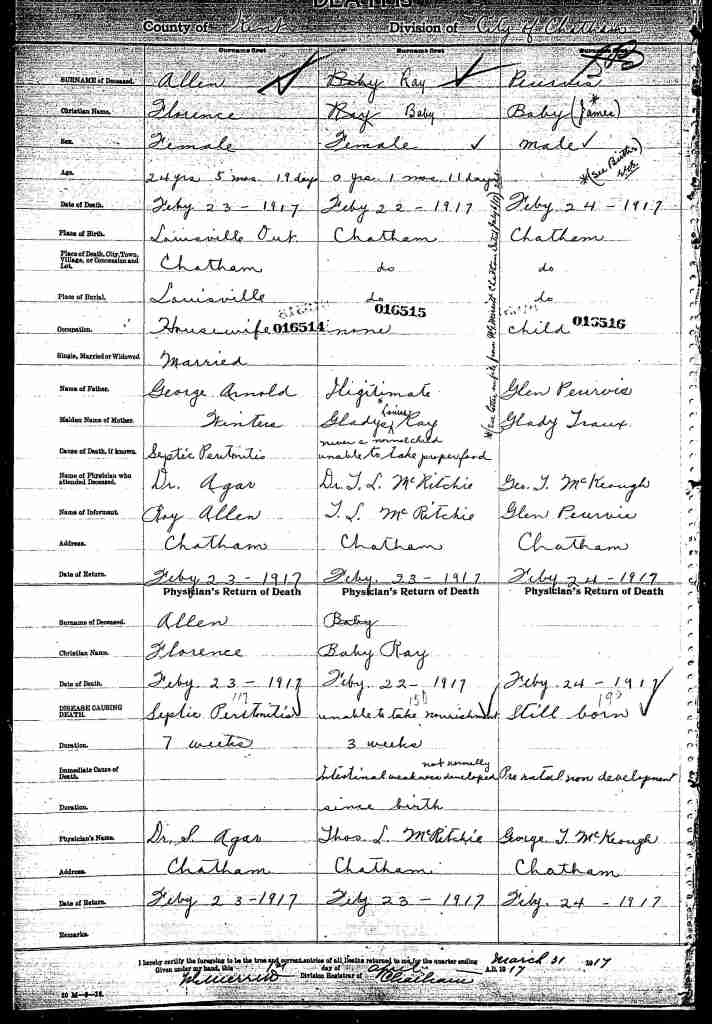 DEATHS
County of Kent Division of City of Chatham
Surname first Surname first Surname first
SURNAME of Deceased. Allen Baby Ray Peurvis
Christian Name. Florence Ray Baby Baby (James)
Sex. Female Female male
*(See Births)
Age. 24 yrs 5 mos. 19 days 0 yrs. 1 mos. 11 days
Date of Death. Feby 23 - 1917 Feby 22 - 1917 Feby 24 - 1917
Place of Birth. Louisville Ont. Chatham Chatham
Place of Death, City, Town, Village, or Concession and Lot. Chatham do do
Place of Burial. Louisville do do
016514 016515 015516
Occupation. Housewife none child
Single, Married or Widowed Married
Name of Father. George Arnold Illigitimate Glen Peurvis
Maiden Name of Mother. Winters Gladys Ray Glady Traux
Cause of Death, if known. Septic Peritonitis never a normal child
unable to take proper food
Name of Physician who attended Deceased. Dr. Agar Dr. T. L. McRitchie Geo. T. McKeough
Name of Informant. Roy Allen T. L. McRitchie Glen Peurvis
Address. Chatham Chatham Chatham
Date of Return. Feby 23 - 1917 Feby. 23 - 1917 Feby 24 - 1917
Physician's Return of Death Physician's Return of Death Physician's Return of Death
Surname of Deceased. Allen Baby
Christian Name. Florence Baby Ray
Date of Death. Feby 23 - 1917 Feby. 22 - 1917 Feby 24 - 1917
117 151
DISEASE CAUSING DEATH. Septic Peritonitis unable to take nourishment Still born
Duration. 7 weeks 3 weeks
not normally
Immediate Cause of Death. Intestinal weakness developed Pre natal non development
Duration. since birth
Physician's Name. Dr. S. Agar Thos. L. McRitchie George T. McKeough
Address. Chatham Chatham Chatham
Date of Return. Feby 23 - 1917 Feby 23 - 1917 Feby. 24 - 1917
Remarks.
I hereby certify the foregoing to be the true and correct entries of all Deaths returned to me for the quarter ending March 31 1917
Given under my hand, this 1st day of April A.D. 1917
Division Registrar of Chatham
50 M-6-16.